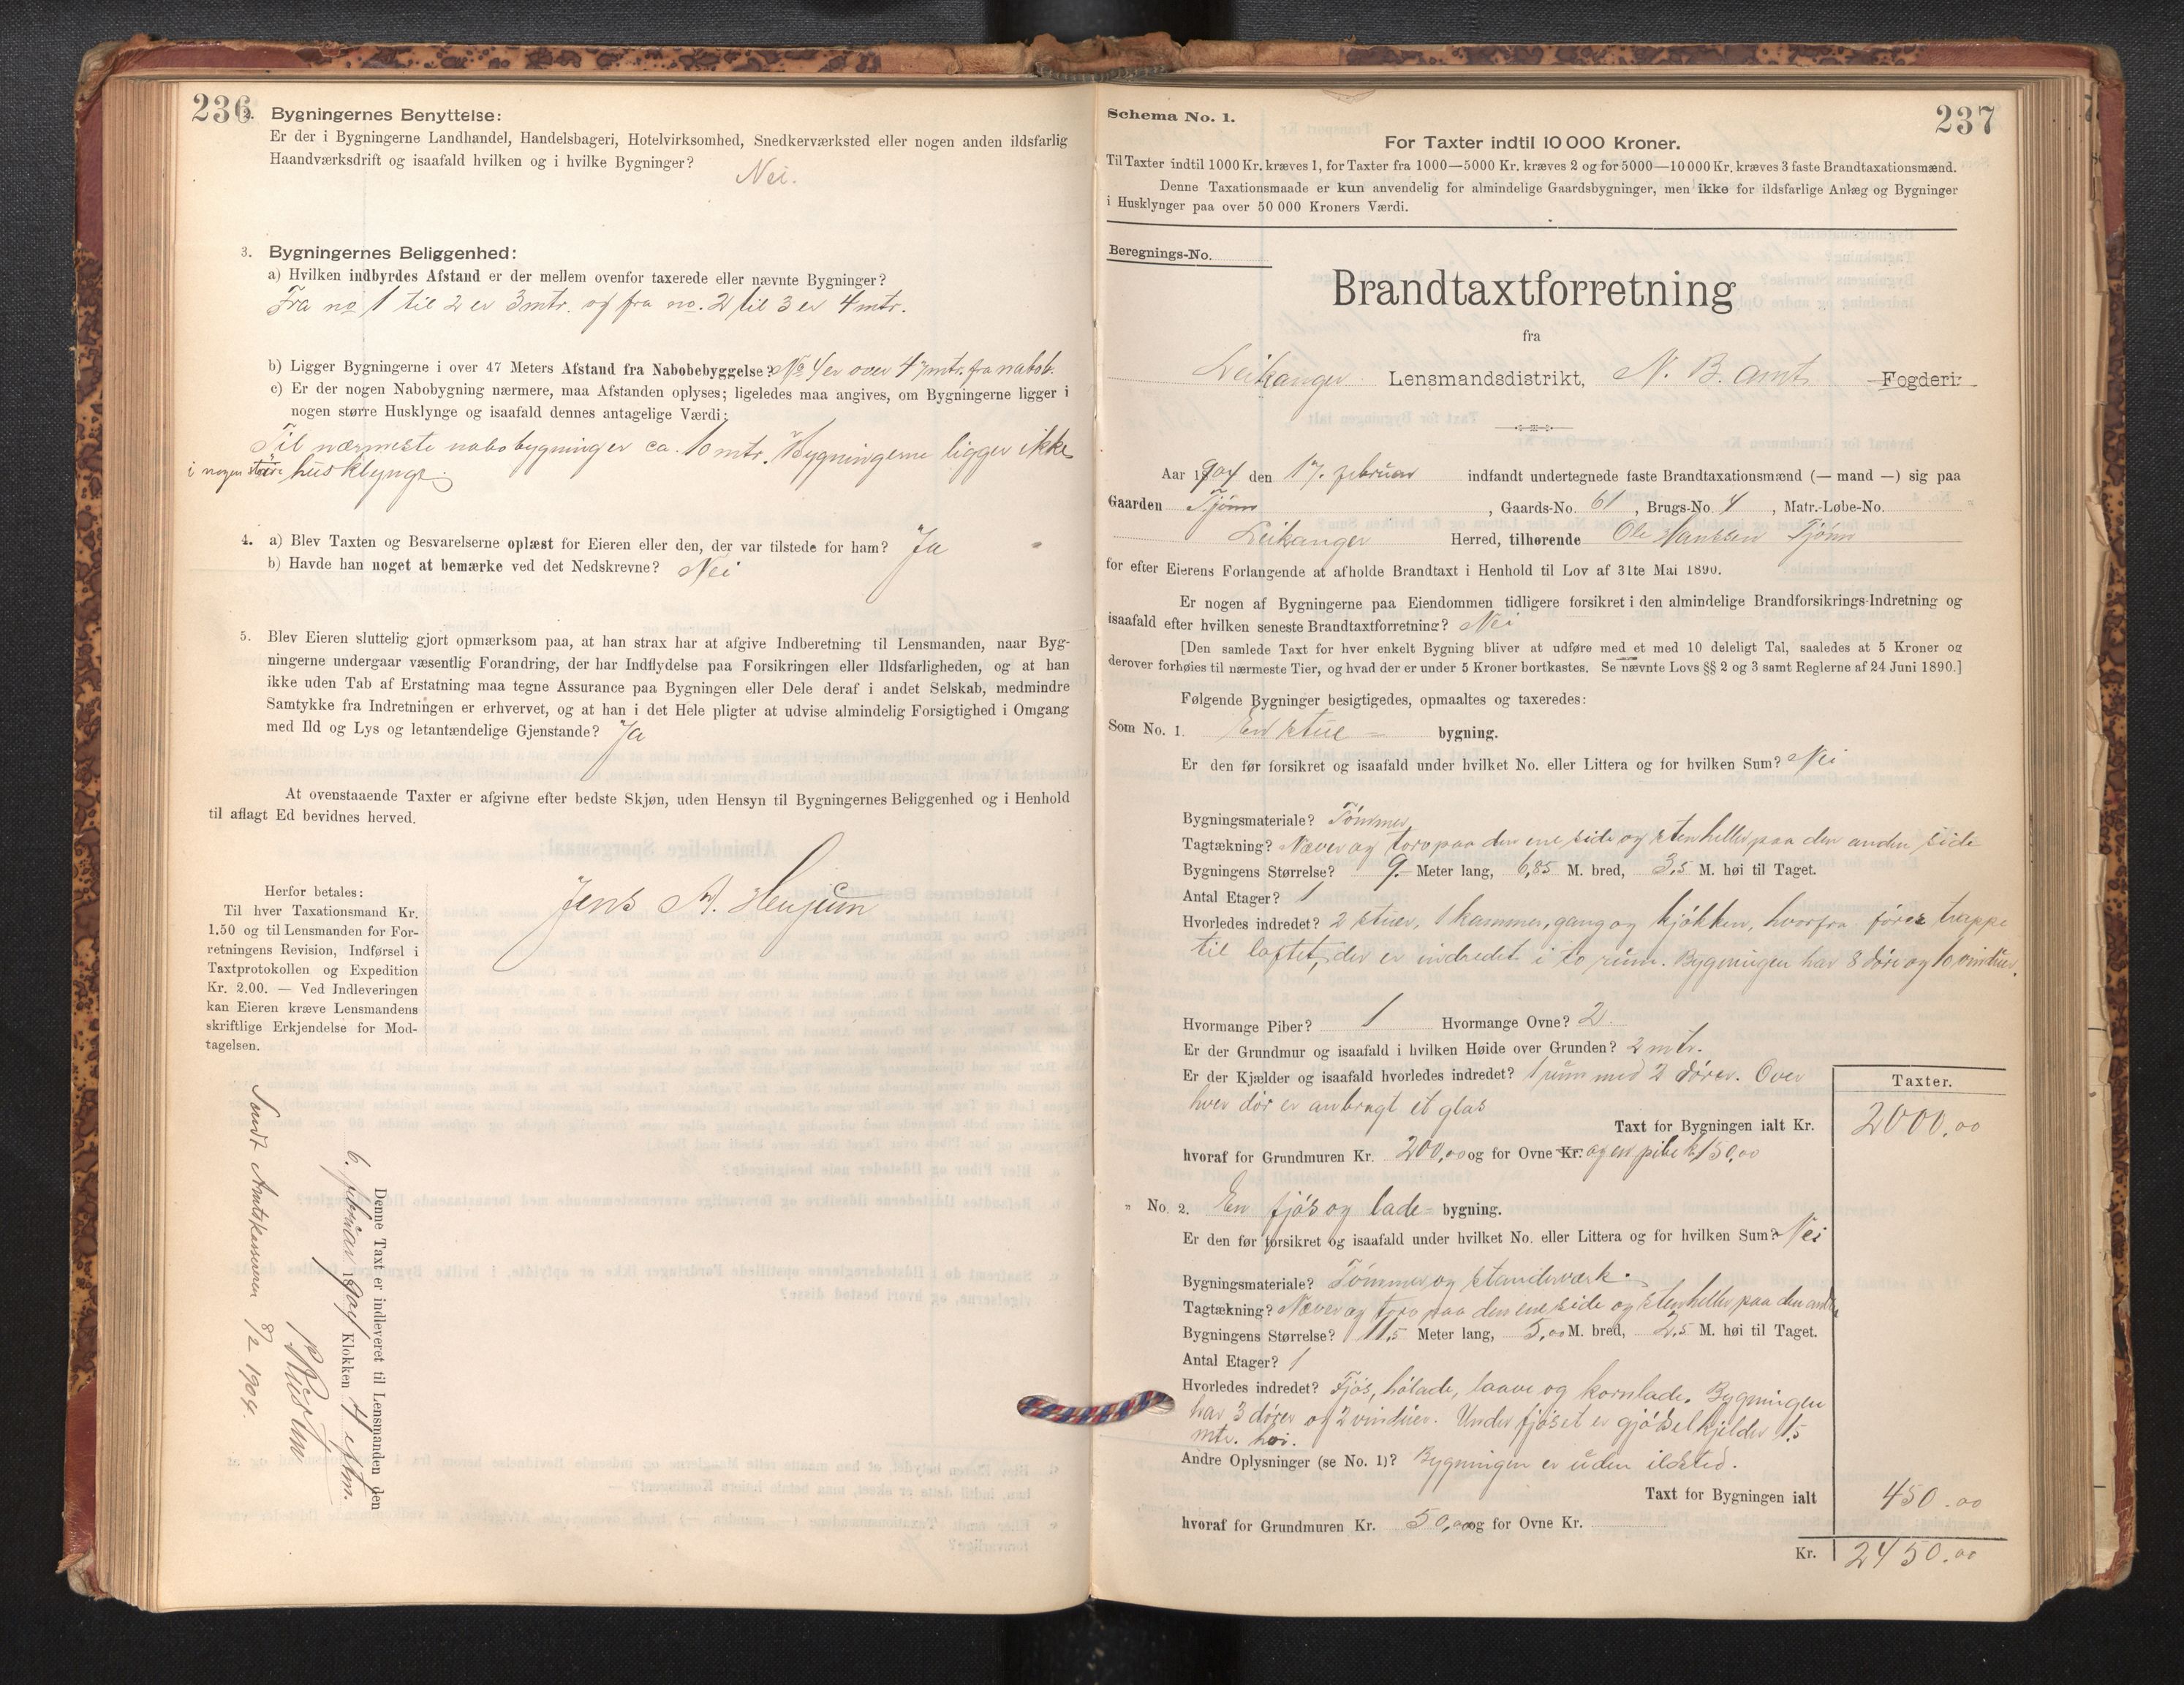 236
2. Bygningernes Benyttelse:
Er der i Bygningerne Landhandel, Handelsbageri, Hotelvirksomhed, Snedkerværksted eller nogen anden ildsfarlig
Haandværksdrift og isaafald hvilken og i hvilke Bygninger? Nei.
3. Bygningernes Beliggenhed:
a) Hvilken indbyrdes Afstand er der mellem ovenfor taxerede eller nævnte Bygninger?
Fra no 1 til 2 er 3 mtr. og fra no. 2 til 3 er 4 mtr.
b) Ligger Bygningerne i over 47 Meters Afstand fra Nabobebyggelse? No 4 er over 47 mtr. fra nabob.
c) Er der nogen Nabobygning nærmere, maa Afstanden oplyses; ligeledes maa angives, om Bygningerne ligger i
nogen større Husklynge og isaafald dennes antagelige Værdi:
Til nærmeste nabobygning er ca. 10 mtr. Bygningerne ligger ikke
i nogen større husklynge.
4. a) Blev Taxten og Besvarelserne oplæst for Eieren eller den, der var tilstede for ham? Ja
b) Havde han noget at bemærke ved det Nedskrevne? Nei
5. Blev Eieren sluttelig gjort opmærksom paa, at han strax har at afgive Indberetning til Lensmanden, naar Byg-
ningerne undergaar væsentlig Forandring, der har Indflydelse paa Forsikringen eller Ildsfarligheden, og at han
ikke uden Tab af Erstatning maa tegne Assurance paa Bygningen eller Dele deraf i andet Selskab, medmindre
Samtykke fra Indretningen er erhvervet, og at han i det Hele pligter at udvise almindelig Forsigtighed i Omgang
med Ild og Lys og letantændelige Gjenstande? Ja
At ovenstaaende Taxter er afgivne efter bedste Skjøn, uden Hensyn til Bygningernes Beliggenhed og i Henhold
til aflagt Ed bevidnes herved.
Jens A. Henjum
Herfor betales:
Til hver Taxationsmand Kr.
1.50 og til Lensmanden for For-
retningens Revision, Indførsel i
Taxtprotokollen og Expedition
Kr. 2.00. — Ved Indleveringen
kan Eieren kræve Lensmandens
skriftlige Erkjendelse for Mod-
tagelsen.
Denne Taxt er indleveret til Lensmanden den
6. februar 1904 Klokken 4 eftm.
Sendt Amtskassereren 8/2 1904.
Schema No. 1.
237
For Taxter indtil 10 000 Kroner.
Til Taxter indtil 1000 Kr. kræves 1, for Taxter fra 1000—5000 Kr. kræves 2 og for 5000—10 000 Kr. kræves 3 faste Brandtaxationsmænd.
Denne Taxationsmaade er kun anvendelig for almindelige Gaardsbygninger, men ikke for ildsfarlige Anlæg og Bygninger
i Husklynger paa over 50 000 Kroners Værdi.
Beregnings-No.
Brandtaxtforretning
fra
Leikanger Lensmandsdistrikt, N. B. amt Fogderi
Aar 1904 den 17. februar indfandt undertegnede faste Brandtaxationsmænd (— mand —) sig paa
Gaarden Tjønn, Gaards-No. 61, Brugs-No. 4, Matr.-Løbe-No.
Leikanger Herred, tilhørende Ole Hanssen Tjønn
for efter Eierens Forlangende at afholde Brandtaxt i Henhold til Lov af 31te Mai 1890.
Er nogen af Bygningerne paa Eiendommen tidligere forsikret i den almindelige Brandforsikrings-Indretning og
isaafald efter hvilken seneste Brandtaxtforretning? Nei
[Den samlede Taxt for hver enkelt Bygning bliver at udføre med et med 10 deleligt Tal, saaledes at 5 Kroner og
derover forhøies til nærmeste Tier, og hvad der er under 5 Kroner bortkastes. Se nævnte Lovs §§ 2 og 3 samt Reglerne af 24 Juni 1890.]
Følgende Bygninger besigtigedes, opmaaltes og taxeredes:
Som No. 1. En stue- bygning.
Er den før forsikret og isaafald under hvilket No. eller Littera og for hvilken Sum? Nei
Bygningsmateriale? Tømmer
Tagtækning? Næver og torv paa den ene side og stenheller paa den anden side
Bygningens Størrelse? 9.- Meter lang, 6,85 M. bred, 3,5 M. høi til Taget.
Antal Etager? 1
Hvorledes indredet? 2 stuer, 1 kammer, gang og kjøkken, hvorfra fører trappe
til loftet, der er indredet i to rum. Bygningen har 8 døre og 10 vinduer.
Hvormange Piber? 1 Hvormange Ovne? 2.
Er der Grundmur og isaafald i hvilken Høide over Grunden? 2 mtr.
Er der Kjælder og isaafald hvorledes indredet? 1 rum med 2 dører. Over
hver dør er anbragt et glas
Taxter.
Taxt for Bygningen ialt Kr. 2000,00
hvoraf for Grundmuren Kr. 200,00 og for Ovne Kr. og en pibe kr 150,00
" No. 2. En fjøs og lade- bygning.
Er den før forsikret og isaafald under hvilket No. eller Littera og for hvilken Sum? Nei
Bygningsmateriale? Tømmer og standerværk.
Tagtækning? Næver og torv paa den ene side og stenheller paa den anden
Bygningens Størrelse? 11,5 Meter lang, 5,00 M. bred, 2,5 M. høi til Taget.
Antal Etager? 1
Hvorledes indredet? Fjøs, hølade, laave og kornlade. Bygningen
har 3 dører og 2 vinduer. Under fjøset er gjødselkjelder 1,5
mtr. høi.
Andre Oplysninger (se No. 1)? Bygningen er uden ildsted.
Taxt for Bygningen ialt 450.00
hvoraf for Grundmuren Kr. 50,00 og for Ovne Kr.
Kr. 2450.00